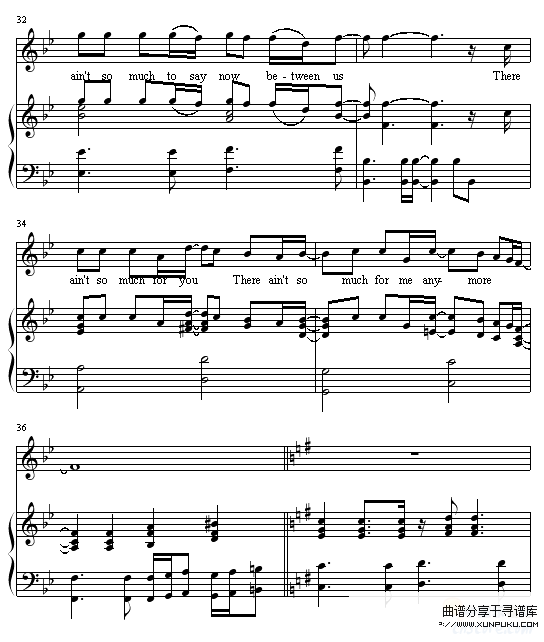 32
ain't so much to say now be-tween us There
34
ain't so much for you There ain't so much for me any- more
36
曲谱分享于寻谱库
WWW.XUNPUKU.COM